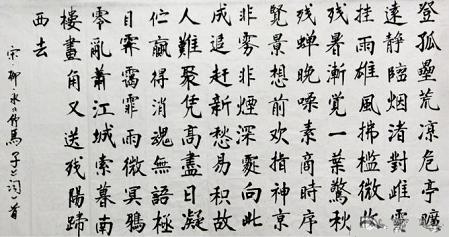 登孤壘荒凉危亭曠
遠静臨烟渚對雌霓
挂雨雄風拂檻微收
残暑漸覺一葉驚秋
残蟬晚噪素商時序
覽景想前欢指神京
非霧非煙深處向此
成追赶新愁易积故
人難聚凭高盡日凝
伫贏得消魂無語極
目霁靄霏雨微冥鴉
零亂蕭江城索暮南
樓畫角又送残陽蹄
西去
宋柳永竹馬子之词一首